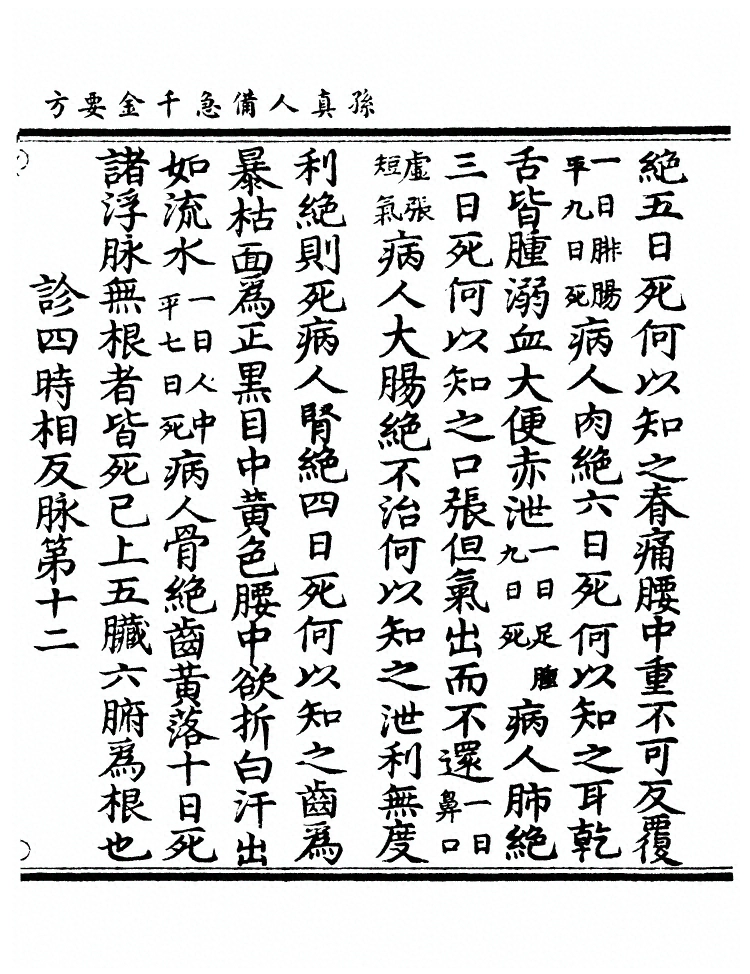 孫真人備急千金要方
絕五日死何以知之脊痛腰中重不可反覆
一日腓腸平九日死病人肉絕六日死何以知之耳乾
舌皆腫溺血大便赤泄一日足腫九日死病人肺絕
三日死何以知之口張但氣出而不還一日鼻口
虛張短氣病人大腸絕不治何以知之泄利無度
利絕則死病人腎絕四日死何以知之齒為
暴枯面為正黑目中黃色腰中欲折白汗出
如流水一日人中平七日死病人骨絕齒黃落十日死
諸浮脉無根者皆死已上五臟六腑為根也
診四時相反脉第十二